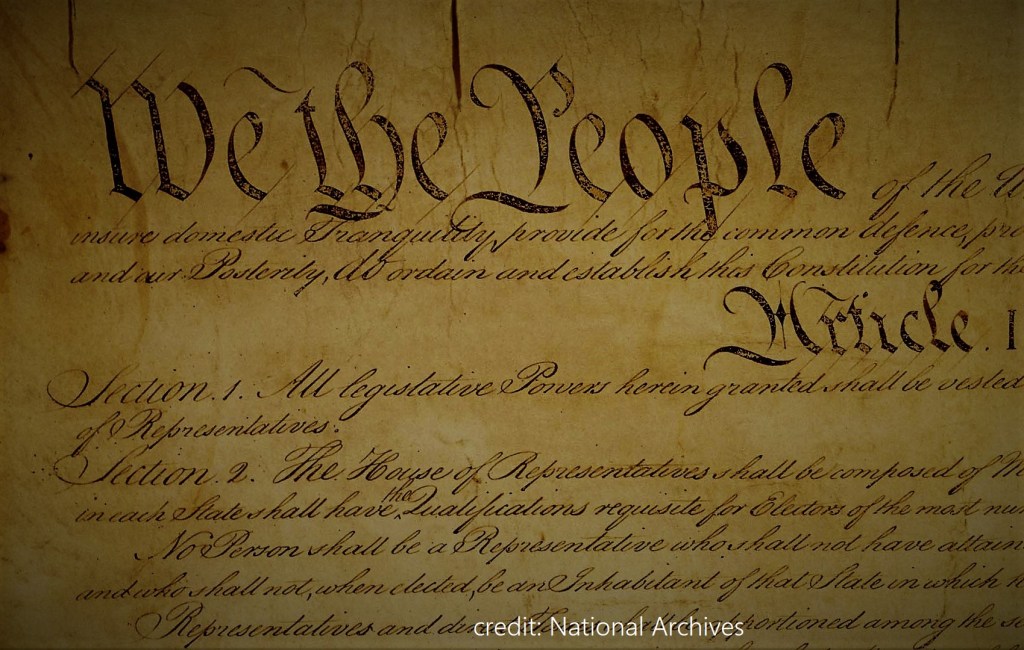 We the People of the U
insure domestic Tranquility, provide for the common defence, pro
and our Posterity, do ordain and establish this Constitution for the
Article. I
Section. 1. All legislative Powers herein granted shall be vested
of Representatives.
Section. 2. The House of Representatives shall be composed of M
in each State shall have the Qualifications requisite for Electors of the most num
No Person shall be a Representative who shall not have attain
and who shall not, when elected, be an Inhabitant of that State in which
Representatives and direct apportioned among the se
credit: National Archives